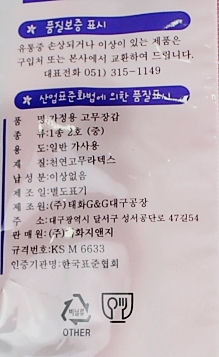 ★ 품질보증 표시
유통중 손상되거나 이상이 있는 제품은
구입처 또는 본사에서 교환하여 드립니다.
대표전화 051) 315-1149
★ 산업표준화법에 의한 품질표시
품 명:가정용 고무장갑
종 류:1종 2호 (중)
용 도:일반 가사용
재 질:천연고무라텍스
납 성 분:이상없음
제 조 일:별도표기
제 조 원:(주)태화G&G대구공장
주 소:대구광역시 달서구 성서공단로 47길54
판 매 원:(주)태화지앤지
규격번호:KS M 6633
인증기관명:한국표준협회
비닐류
OTHER